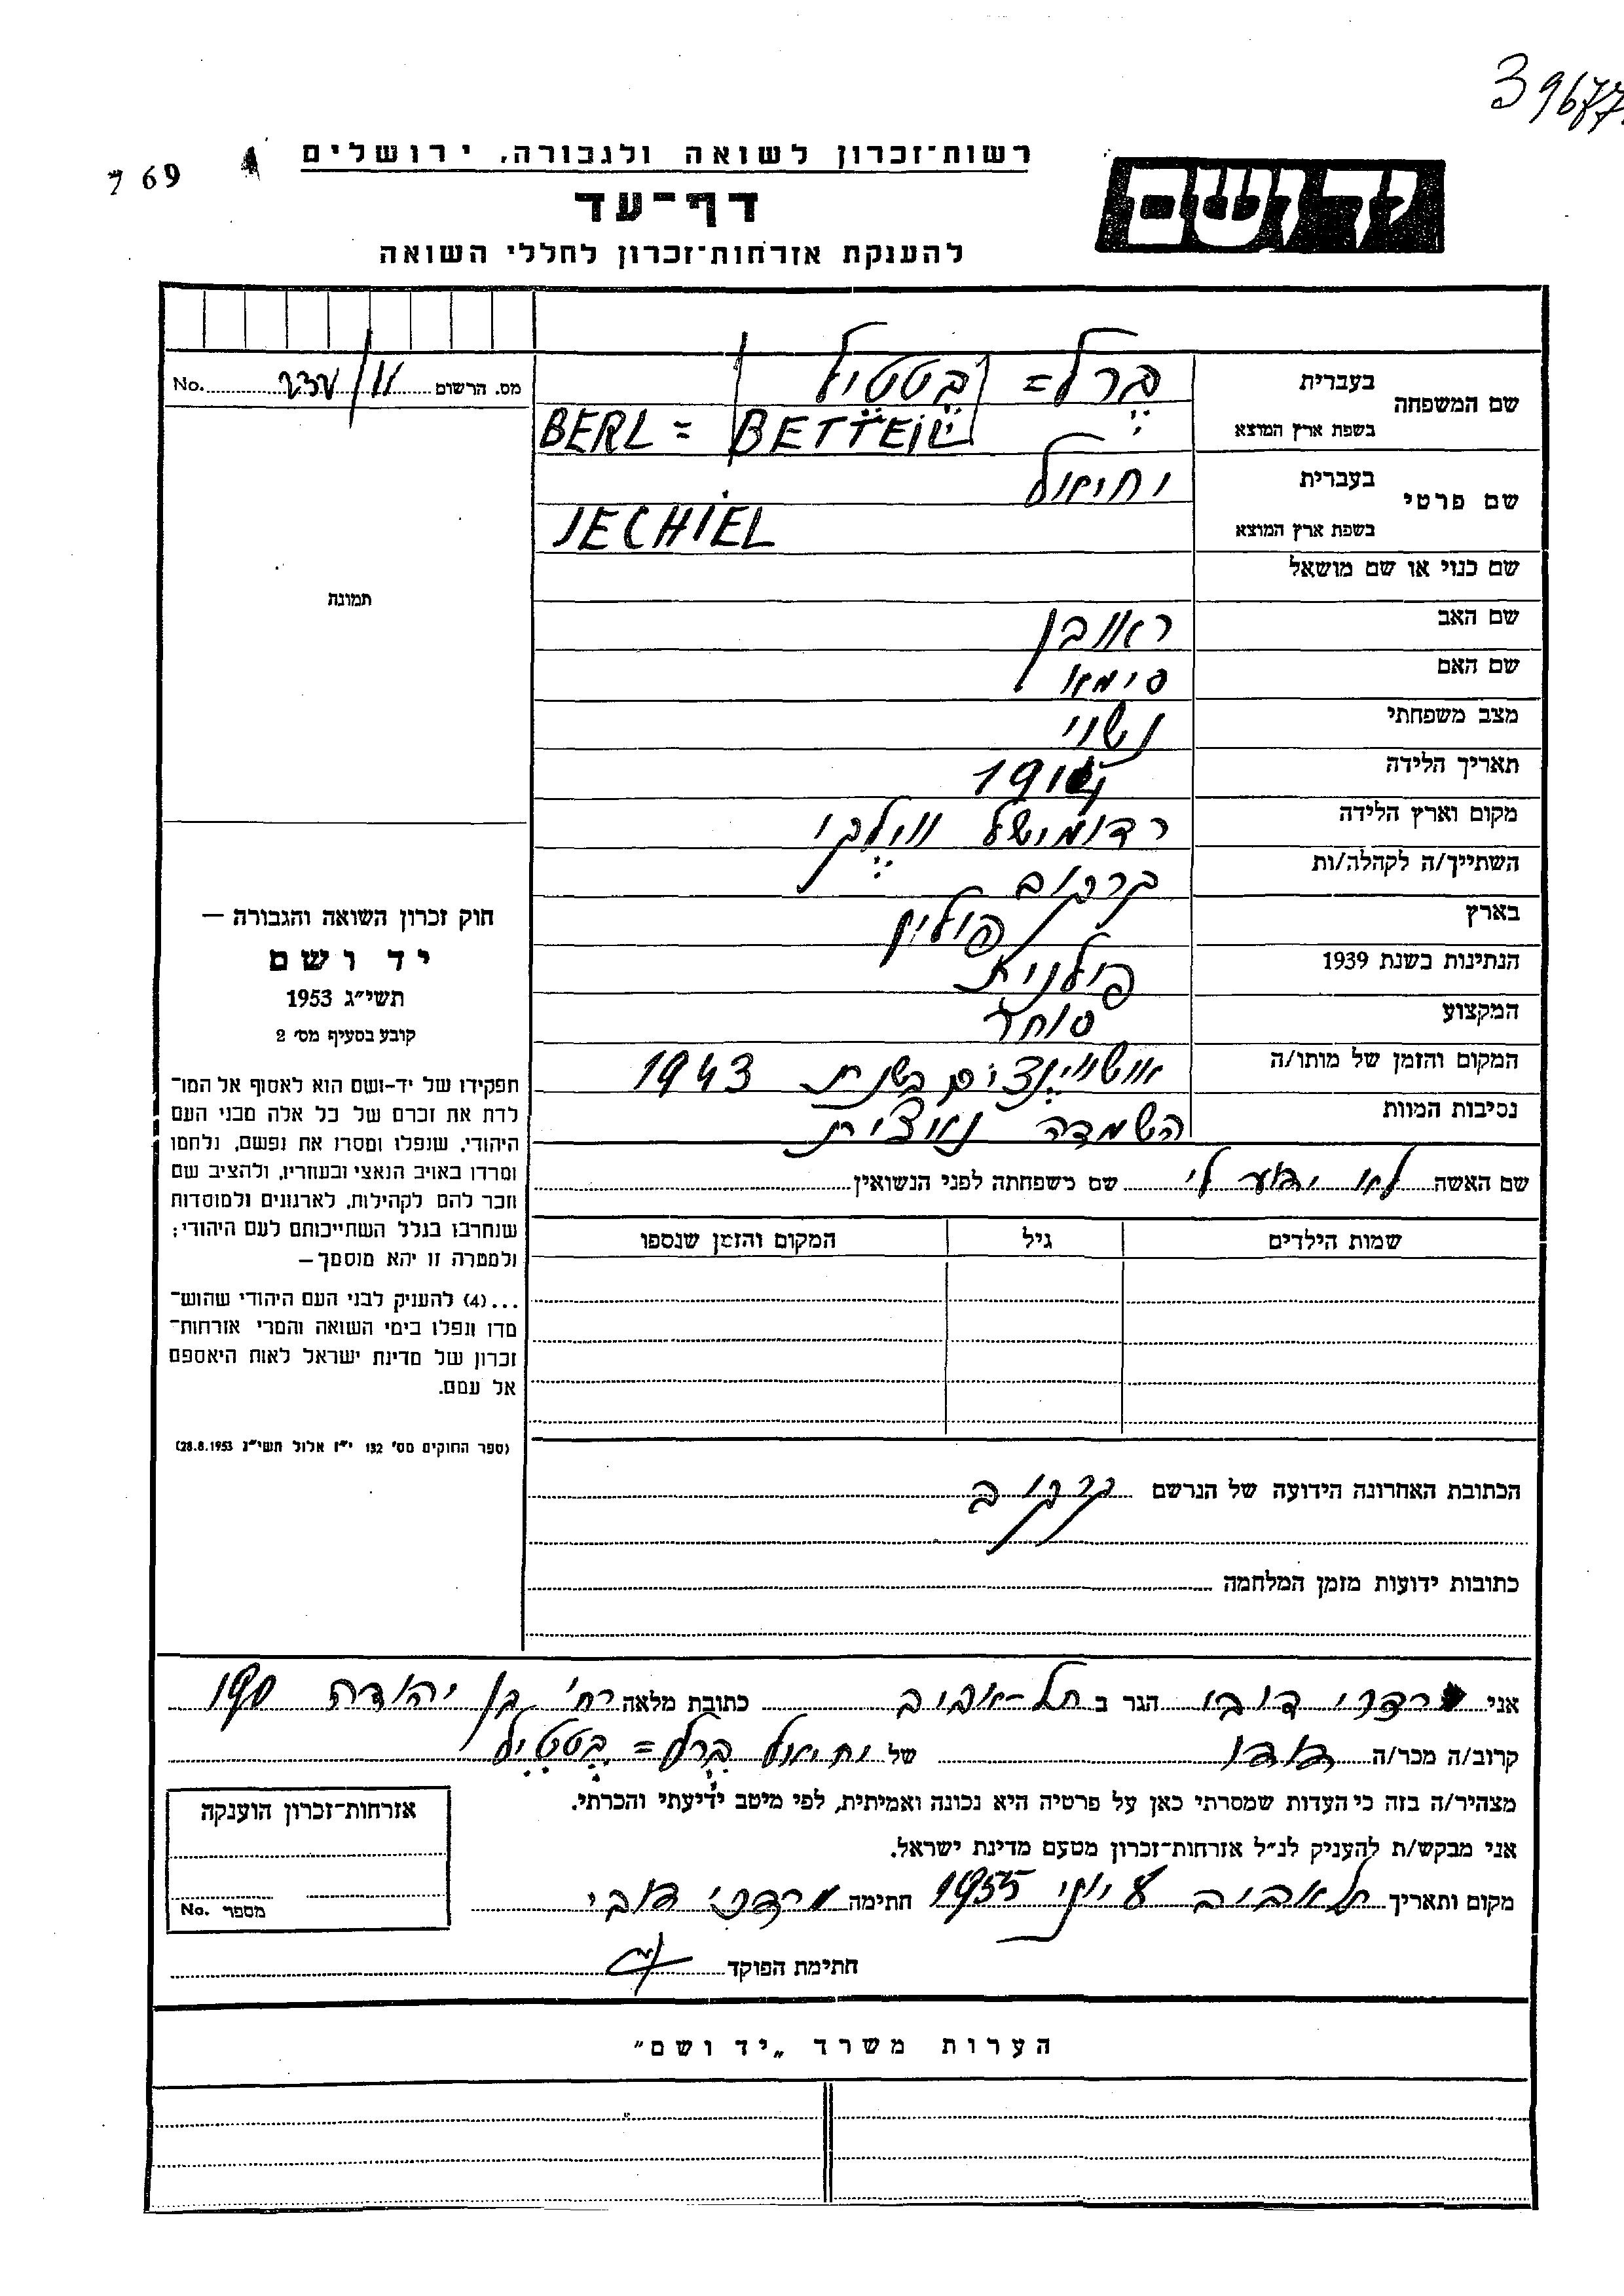 39677
769
רשות־זכרון לשואה ולגבורה, ירושלים
יד ושם
דף־עד
להענקת אזרחות־זכרון לחללי השואה
שם המשפחה
בעברית
ברל = בטטיל
בשפת ארץ המוצא
BERL = BETTEIL
שם פרטי
בעברית
יחיאל
בשפת ארץ המוצא
JECHIEL
שם כנוי או שם מושאל
שם האב ראובן
שם האם סימא
מצב משפחתי נשוי
תאריך הלידה
מקום וארץ הלידה רדומישל ווילקי
השתייך/ה לקהלה/ות קרקוב
בארץ פולין
הנתינות בשנת 1939 פולנית
המקצוע סוחר
המקום והזמן של מותו/ה אושוינצים בשנת 1943
נסיבות המוות השמדה נאצית
שם האשה לא ידוע לי שם משפחתה לפני הנשואין
שמות הילדים גיל המקום והזמן שנספו
הכתובת האחרונה הידועה של הנרשם קרקוב
כתובות ידועות מזמן המלחמה
מס. הרשום No.
תמונה
חוק זכרון השואה והגבורה —
יד ושם
תשי״ג 1953
קובע בסעיף מס׳ 2
תפקידו של יד-ושם הוא לאסוף אל המו־
לדת את זכרם של כל אלה מבני העם
היהודי, שנפלו ומסרו את נפשם, נלחמו
ומרדו באויב הנאצי ובעוזריו, ולהציב שם
וזכר להם לקהילות, לארגונים ולמוסדות
שנחרבו בגלל השתייכותם לעם היהודי;
ולמטרה זו יהא מוסמך —
...(4) להעניק לבני העם היהודי שהוש־
מדו ונפלו בימי השואה והמרי אזרחות־
זכרון של מדינת ישראל לאות היאספם
אל עמם.
(ספר החוקים מס׳ 132 י״ז אלול תשי״ג 28.8.1953)
אני מרדכי דובי הגר ב תל-אביב כתובת מלאה רח׳ בן יהודה 190
קרוב/ה מכר/ה דודו של יחיאל ברל = בטטיל
מצהיר/ה בזה כי העדות שמסרתי כאן על פרטיה היא נכונה ואמיתית, לפי מיטב ידיעתי והכרתי.
אני מבקש/ת להעניק לנ״ל אזרחות־זכרון מטעם מדינת ישראל.
מקום ותאריך תל אביב 8 יוני 1955 חתימה מרדכי דובי
חתימת הפוקד
אזרחות־זכרון הוענקה
מספר No.
הערות משרד „יד ושם״